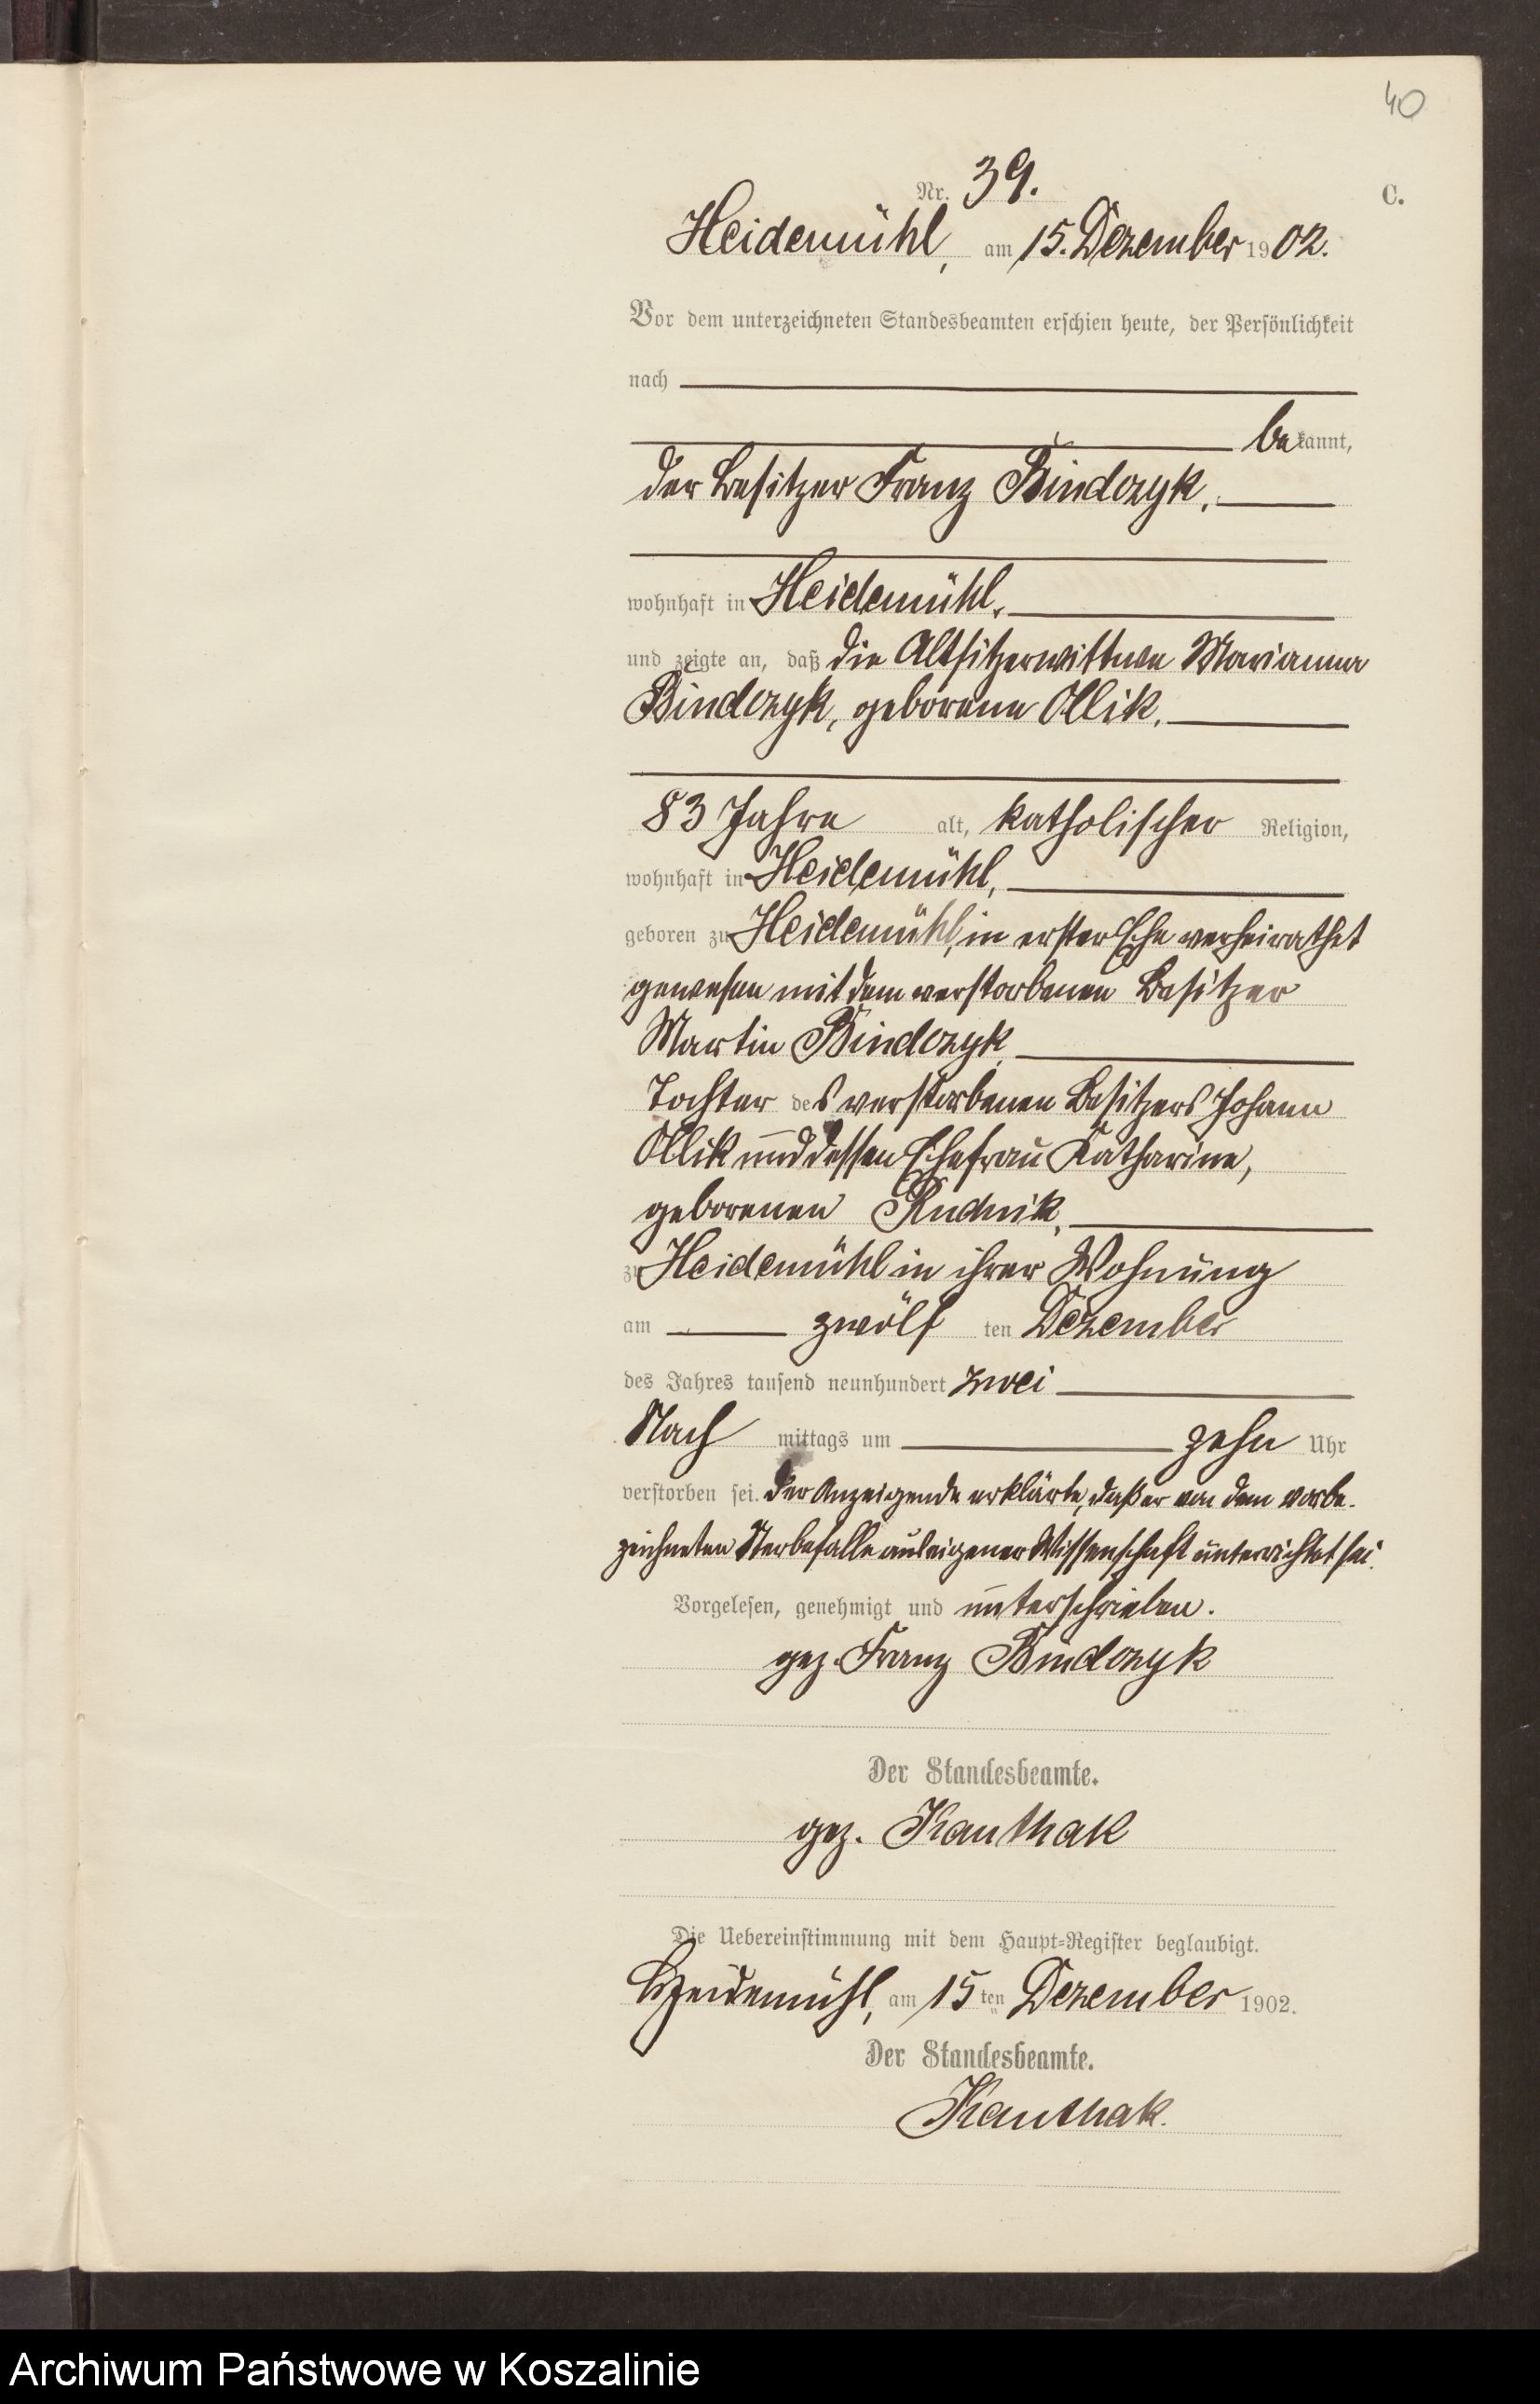 40
Nr. 39.
C.
Heidemühl, am 15. Dezember 1902.
Vor dem unterzeichneten Standesbeamten erschien heute, der Persönlichkeit
nach
bekannt,
der Besitzer Franz Bindczyk,
wohnhaft in Heidemühl,
und zeigte an, daß die Altsitzerwittwe Marianna
Bindczyk, geborene Ollik,
83 Jahre alt, katholischer Religion,
wohnhaft in Heidemühl,
geboren zu Heidemühl, in erster Ehe verheirathet
gewesen mit dem verstorbenen Besitzer
Martin Bindczyk,
Tochter des verstorbenen Besitzers Johann
Ollik und dessen Ehefrau Katharine,
geborenen Rudnik,
zu Heidemühl in ihrer Wohnung
am zwölf ten Dezember
des Jahres tausend neunhundert zwei
Nach mittags um zehn Uhr
verstorben sei. Der Anzeigende erklärte, daß er von dem vorbe-
zeichneten Sterbefalle aus eigener Wissenschaft unterrichtet sei.
Vorgelesen, genehmigt und unterschrieben.
gez. Franz Bindczyk
Der Standesbeamte.
gez. Kauthak
Die Uebereinstimmung mit dem Haupt-Register beglaubigt.
Heidemühl, am 15 ten Dezember 1902.
Der Standesbeamte.
Kauthak.
Archiwum Państwowe w Koszalinie